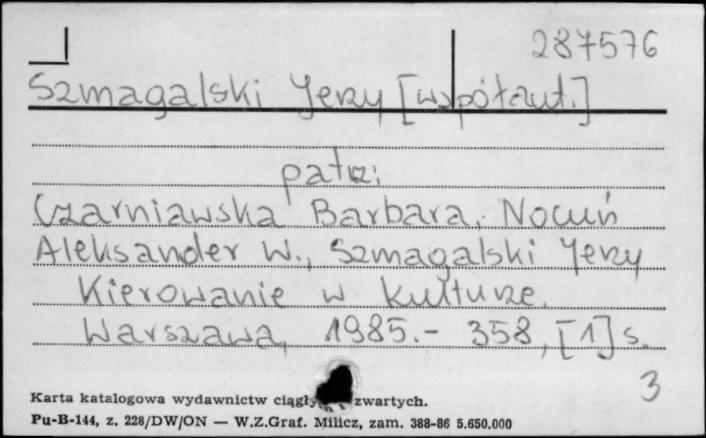 287576
Szmagalski Jerzy [współaut.]
patrz:
Czarniawska Barbara, Nocuń
Aleksander W., Szmagalski Jerzy
Kierowanie w kulturze.
Warszawa, 1985. - 358, [1] s.
3
Karta katalogowa wydawnictw zwartych.
Pu-B-144, z. 228/DW/ON — W.Z.Graf. Milicz, zam. 388-86 5.650.000